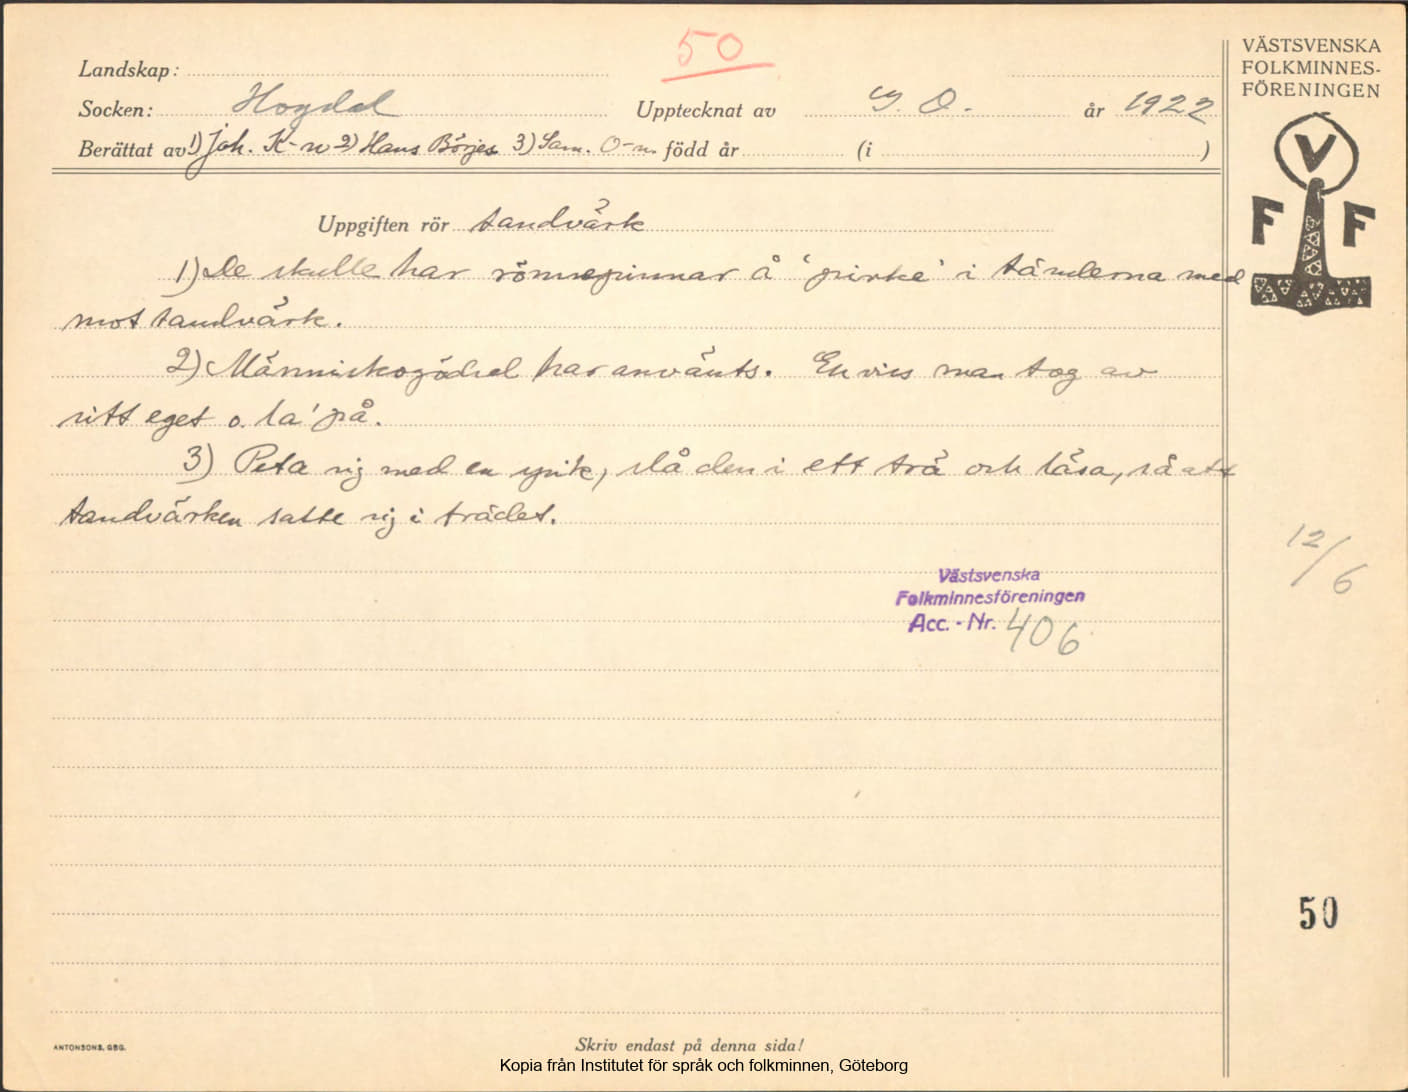 50
Landskap:
Socken: Hogdal Upptecknat av G. O. år 1922
Berättat av 1) Joh. K-n 2) Hans Börjes. 3) Sam. O-n. född år (i )
VÄSTSVENSKA
FOLKMINNES-
FÖRENINGEN
V
F F
Uppgiften rör tandvärk
1) De skulle har rönnepinnar å 'pirke' i tänderna med
mot tandvärk.
2) Människogödsel har använts. En viss man tog av
sitt eget o. la' på.
3) Peta sig med en spik, slå den i ett trä och läsa, så att
tandvärken satte sig i trädet.
Västsvenska
Folkminnesföreningen
Acc. - Nr. 406
12/6
50
ANTONSONS, GBG.
Skriv endast på denna sida!
Kopia från Institutet för språk och folkminnen, Göteborg